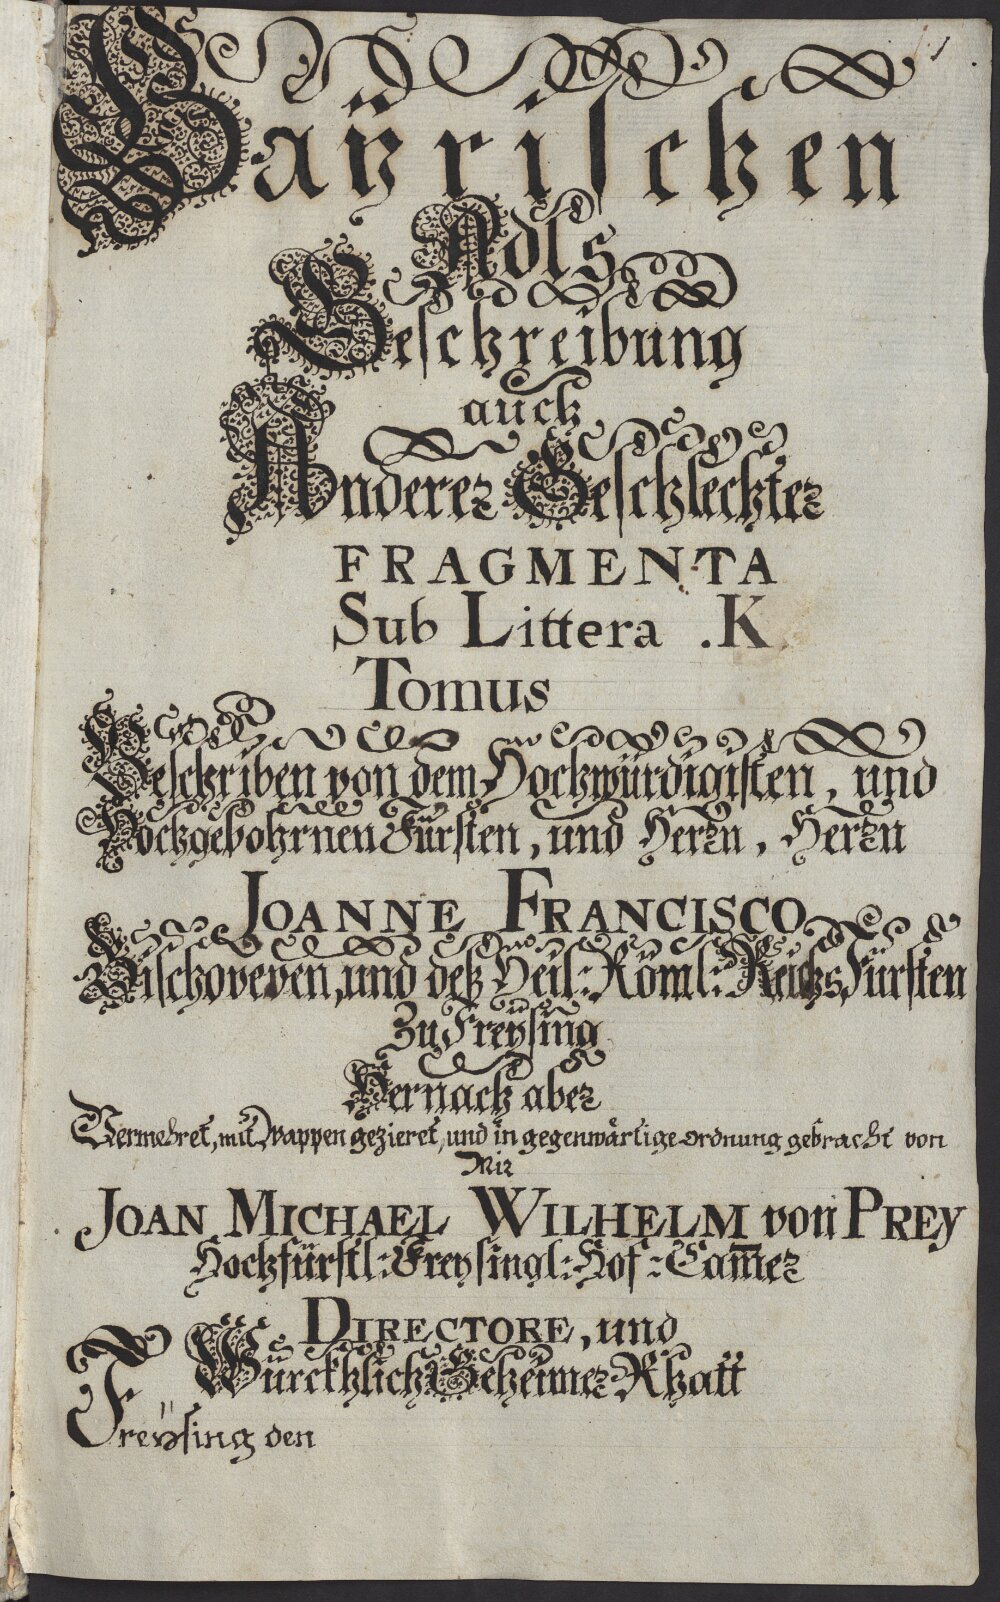 1
Baÿrischen
Adls
Beschreibung
auch
Anderer Geschlechter
FRAGMENTA
Sub Littera .K
Tomus
Beschriben von dem Hochwürdigisten, und
Hochgebohrnen Fürsten, und Herrn, Herrn
JOANNE FRANCISCO
Bischoven, und deß Heil: Röml: Reichs Fürsten
Zu Freysing
Hernach aber
Vermehret, mit Wappen gezieret, und in gegenwärtige ordnung gebracht von
Mir
JOAN MICHAEL WILHELM von PREY
Hochfürstl: Freysingl: Hof: Cam̅er
DIRECTORE, und
Würckhlich Geheimer Rhatt
Freÿsing den